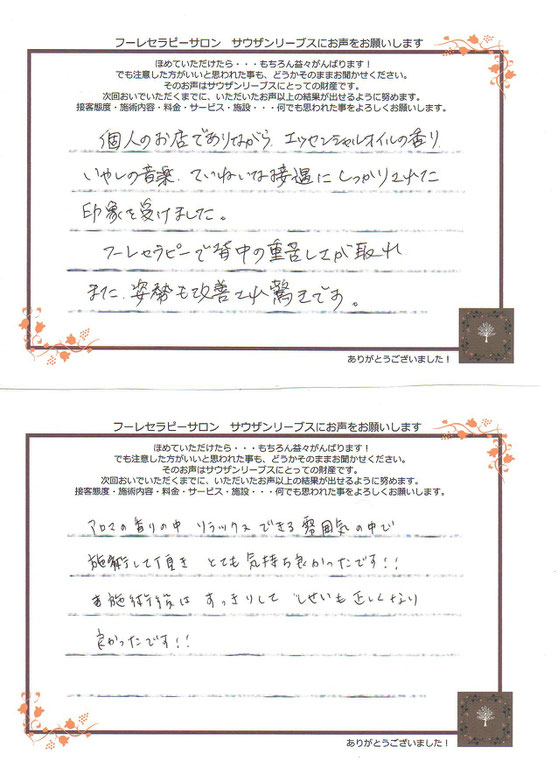 フーレセラピーサロン サウザンリーブスにお声をお願いします
ほめていただけたら・・・もちろん益々がんばります！
でも注意した方がいいと思われた事も、どうかそのままお聞かせください。
そのお声はサウザンリーブスにとっての財産です。
次回おいでいただくまでに、いただいたお声以上の結果が出せるように努めます。
接客態度・施術内容・料金・サービス・施設・・・何でも思われた事をよろしくお願いします。
個人のお店でありながら、エッセンシャルオイルの香り、
いやしの音楽、ていねいな接遇にしっかりされた
印象を受けました。
フーレセラピーで背中の重苦しさが取れ
また、姿勢も改善され驚きです。
ありがとうございました！
フーレセラピーサロン サウザンリーブスにお声をお願いします
ほめていただけたら・・・もちろん益々がんばります！
でも注意した方がいいと思われた事も、どうかそのままお聞かせください。
そのお声はサウザンリーブスにとっての財産です。
次回おいでいただくまでに、いただいたお声以上の結果が出せるように努めます。
接客態度・施術内容・料金・サービス・施設・・・何でも思われた事をよろしくお願いします。
アロマの香りの中 リラックスできる雰囲気の中で
施術して頂き とても気持ち良かったです!!
施術後は すっきりして しせいも正しくなり
良かったです!!
ありがとうございました！